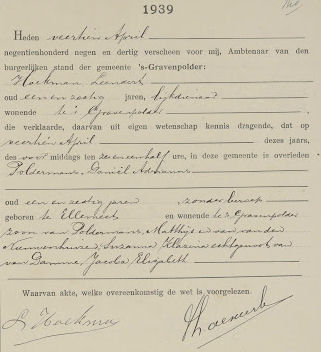 1939
Heden veertien April
negentienhonderd negen en dertig verscheen voor mij, Ambtenaar van den
burgerlijken stand der gemeente 's-Gravenpolder:
Hoekman Leendert
oud een en zestig jaren, lijkdienaar
wonende te 's Gravenpolder
die verklaarde, daarvan uit eigen wetenschap kennis dragende, dat op
veertien April dezes jaars,
des voor middags ten zeven en half ure, in deze gemeente is overleden
Poldermans, Daniël Adrianus
oud een en zestig jaren zonder beroep
geboren te Ellemeet en wonende te 's Gravenpolder
zoon van Poldermans, Matthijs en van van den
Nieuwenhuizen, Suzanna Klazina echtgenoot van
van Damme, Jacoba Elizabeth
Waarvan akte, welke overeenkomstig de wet is voorgelezen.
L. Hoekman